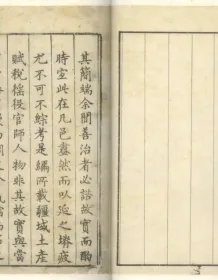 其簡端余聞善治者必諮故實而酌
時宜此在凡邑盡然而以之疲
尤不可不綜考是編所載疆域土產
賦稅徭役官師人物非其故實與當